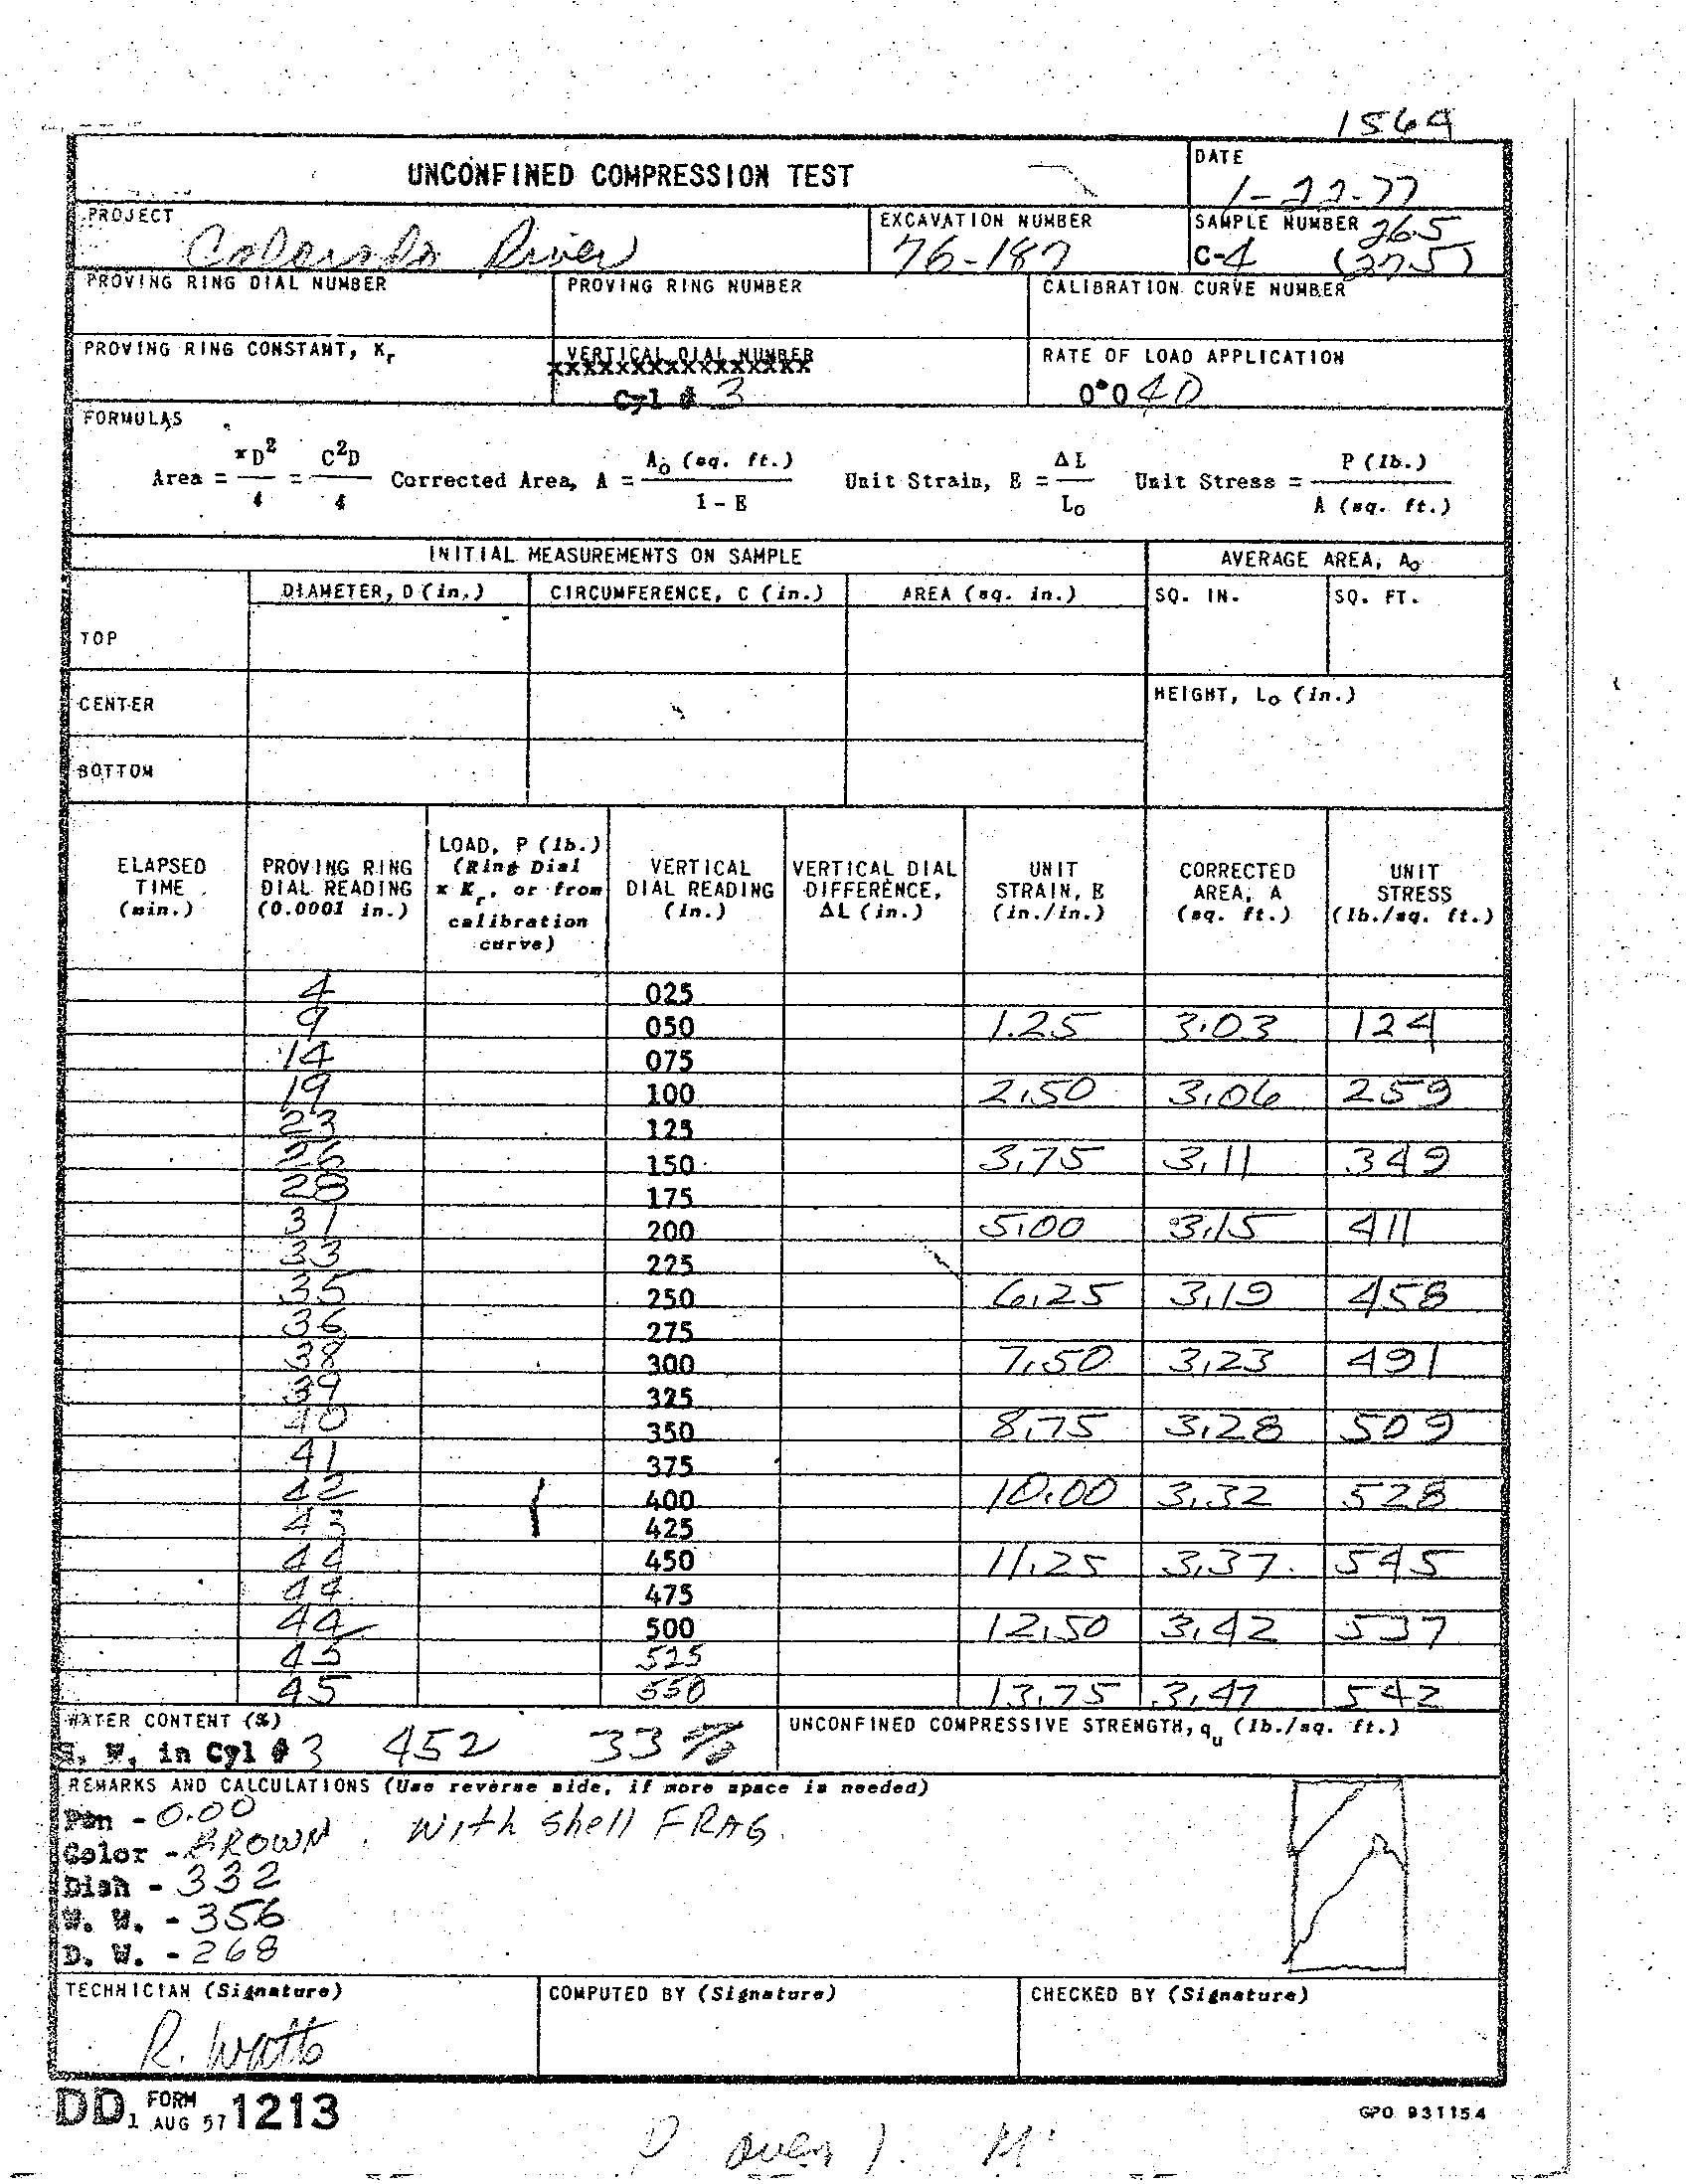 1564
UNCONFINED COMPRESSION TEST
DATE
1-22-77
PROJECT
Colorado River
EXCAVATION NUMBER
76-187
SAMPLE NUMBER 265
C-4 (275)
PROVING RING DIAL NUMBER
PROVING RING NUMBER
CALIBRATION CURVE NUMBER
PROVING RING CONSTANT, Kr
VERTICAL DIAL NUMBER
XXXXXXXXXXXXXXXX
Cyl # 3
RATE OF LOAD APPLICATION
0.040
FORMULAS
Area = πD²/4 = C²D/4 Corrected Area, A = Ao (sq. ft.)/1 - E Unit Strain, E = ΔL/Lo Unit Stress = P (lb.)/A (sq. ft.)
INITIAL MEASUREMENTS ON SAMPLE
AVERAGE AREA, Ao
DIAMETER, D (in.) CIRCUMFERENCE, C (in.) AREA (sq. in.) SQ. IN. SQ. FT.
TOP
CENTER
HEIGHT, Lo (in.)
BOTTOM
ELAPSED TIME (min.)
PROVING RING DIAL READING (0.0001 in.)
LOAD, P (lb.) (Ring Dial x Kr, or from calibration curve)
VERTICAL DIAL READING (in.)
VERTICAL DIAL DIFFERENCE, ΔL (in.)
UNIT STRAIN, E (in./in.)
CORRECTED AREA, A (sq. ft.)
UNIT STRESS (lb./sq. ft.)
4 025
9 050 1.25 3.03 124
14 075
19 100 2.50 3.06 259
23 125
26 150 3.75 3.11 349
28 175
31 200 5.00 3.15 411
33 225
35 250 6.25 3.19 458
36 275
38 300 7.50 3.23 491
39 325
40 350 8.75 3.28 509
41 375
42 400 10.00 3.32 528
43 425
44 450 11.25 3.37 545
44 475
44 500 12.50 3.42 537
45 525
45 550 13.75 3.47 542
WATER CONTENT (%)
S. W. in Cyl # 3 452 33 %
UNCONFINED COMPRESSIVE STRENGTH, qu (lb./sq. ft.)
REMARKS AND CALCULATIONS (Use reverse side, if more space is needed)
Pen - 0.00
Color - BROWN. With Shell FRAG.
Dish - 332
W. W. - 356
D. W. - 268
TECHNICIAN (Signature)
R. Watts
COMPUTED BY (Signature)
CHECKED BY (Signature)
DD FORM 1 AUG 57 1213
GPO 931154